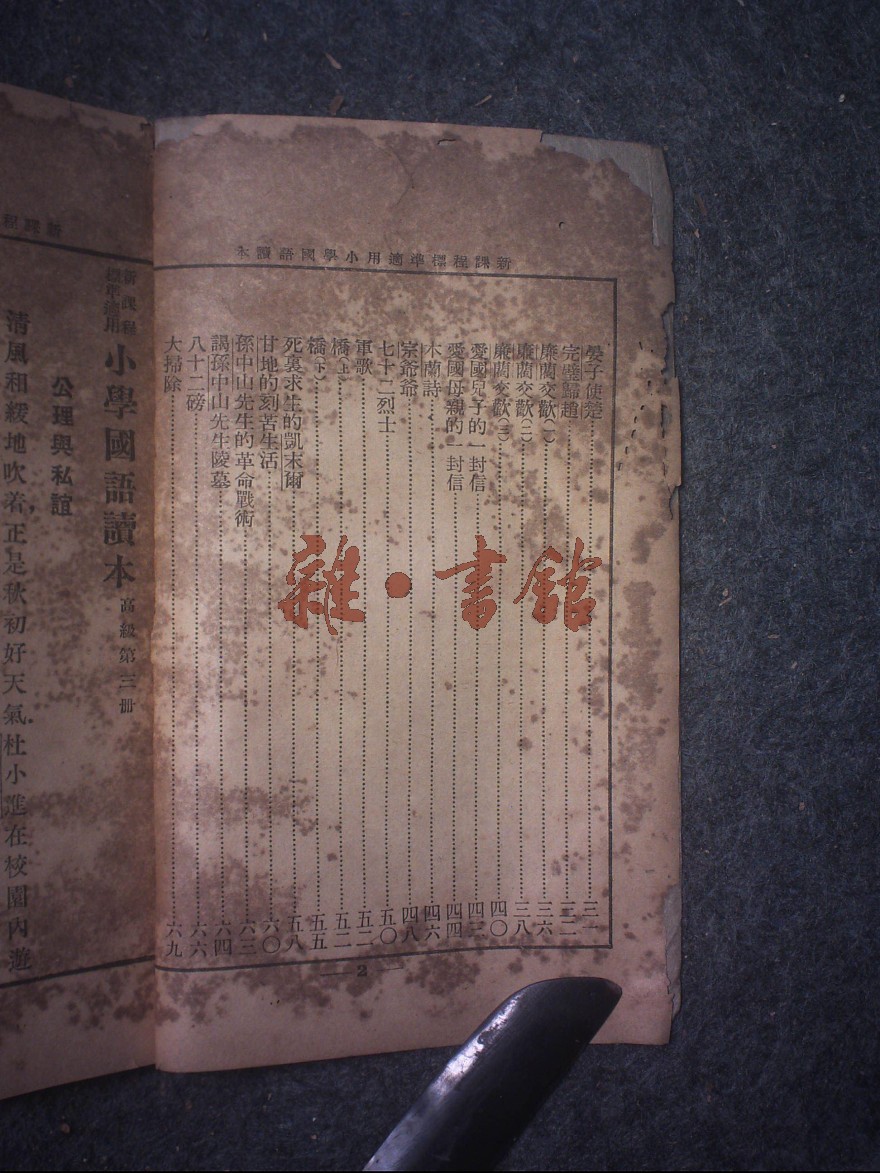 新課程標準適用小學國語讀本
晏子使楚 三一
完璧歸趙 三二
廉藺交歡(一) 三六
廉藺交歡(二) 三八
廉藺交歡(三) 四〇
愛國兒子的一封信 四三
愛國母親的一封信 四四
木蘭詩 四六
宗爺爺 四八
七十二烈士 五〇
軍歌 五二
橋(上) 五二
橋(下) 五五
死裏求生的凱末爾 五八
甘地的刻苦生活 六〇
孫中山先生的革命戰術 六三
謁孫中山先生陵墓 六四
八十二磅 六六
大掃除 六九
2
新課程
新課程標準適用 小學國語讀本 高級第三冊
公理與私誼
清風和緩地吹着正是秋初好天氣杜小進在校園內遊
雜·書館